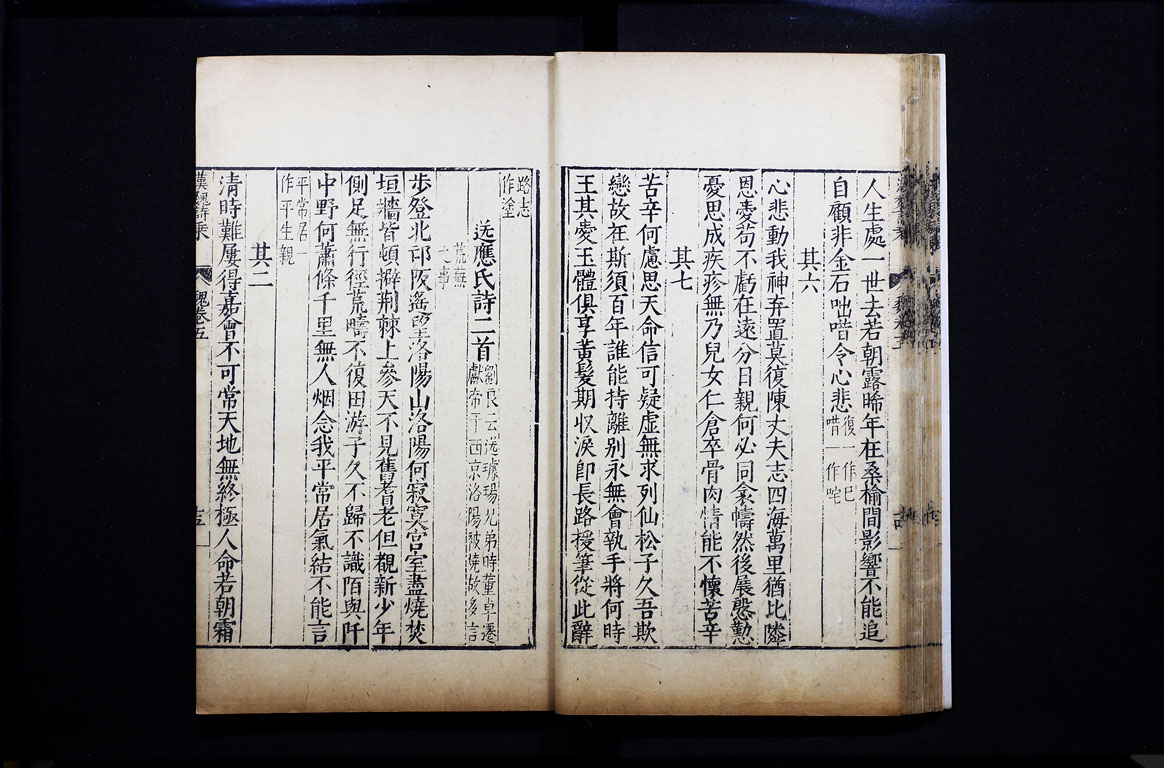 人生處一世去若朝露晞年在桑榆間影響不能追
自顧非金石咄唶令心悲復一作已唶一作咤
其六
心悲動我神弃置莫復陳丈夫志四海萬里猶比鄰
恩愛苟不虧在遠分日親何必同衾幬然後展慇懃
憂思成疾疹無乃兒女仁倉卒骨肉情能不懷苦辛
其七
苦辛何慮思天命信可疑虛無求列仙松子久吾欺
戀故在斯須百年誰能持離別永無會執手將何時
王其愛玉體俱享黃髮期收淚即長路援筆從此辭
路志作塗
送應氏詩二首劉良云送璩瑒兄弟時董卓遷獻帝于西京洛陽被燒故多言
荒蕪之事
步登北邙阪遙望洛陽山洛陽何寂寞宮室盡燒焚
垣牆皆頓擗荆棘上參天不見舊耆老但覩新少年
側足無行徑荒疇不復田游子久不歸不識陌與阡
中野何蕭條千里無人烟念我平常居氣結不能言
平常居一作平生親
其二
清時難屢得嘉會不可常天地無終極人命若朝霜
漢魏詩乘 魏卷五